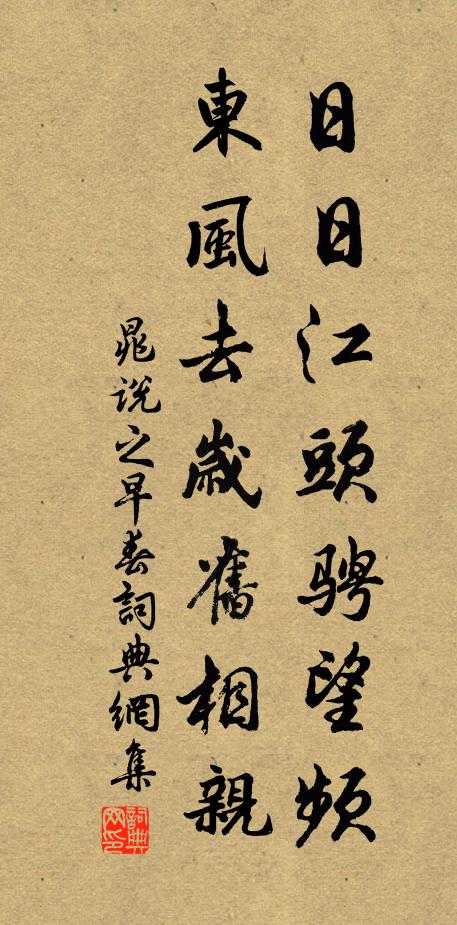 日日江頭騁望頻
東風去歲舊相親
晁說之早春詞典網集
詞典網印